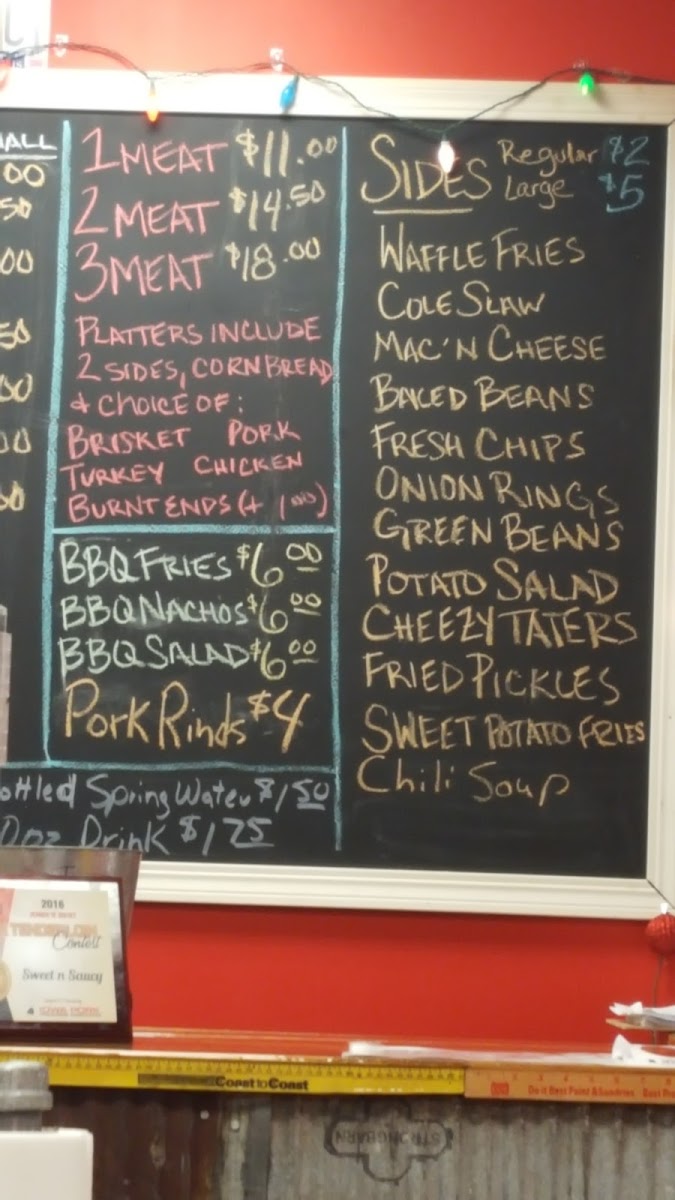 ALL
00
50
00
50
00
00
50
1 MEAT $11.00
2 MEAT $14.50
3 MEAT $18.00
PLATTERS INCLUDE
2 SIDES, CORN BREAD
& CHOICE OF:
BRISKET PORK
TURKEY CHICKEN
BURNT ENDS (+ 1.00)
BBQ FRIES $6.00
BBQ NACHOS $6.00
BBQ SALAD $6.00
Pork Rinds $4
ottled Spring Water $1.50
0oz Drink $1.75
SIDES Regular $2
Large $5
WAFFLE FRIES
COLE SLAW
MAC'N CHEESE
BAKED BEANS
FRESH CHIPS
ONION RINGS
GREEN BEANS
POTATO SALAD
CHEEZY TATERS
FRIED PICKLES
SWEET POTATO FRIES
Chili Soup
2016
TENDERLOIN
Contest
Sweet n Saucy
IOWA PORK
Coast to Coast
Do it Best Paint & Sundries Best
STRONGBARN